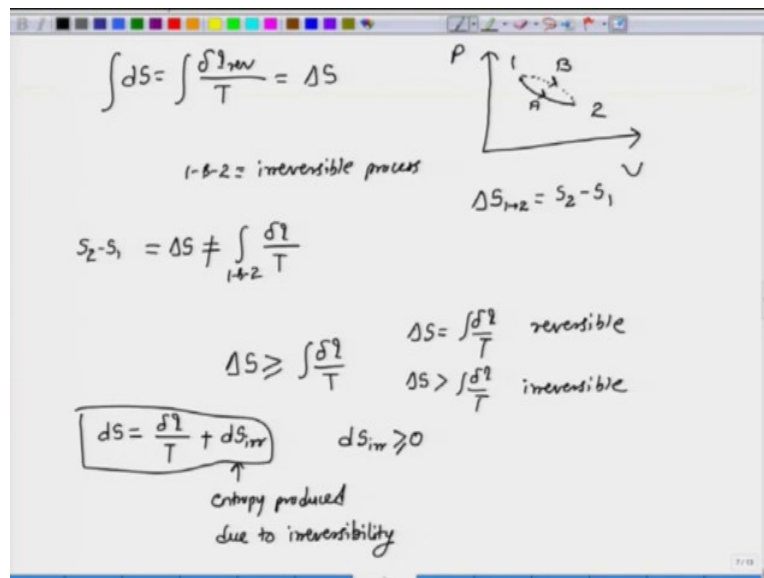 ∫dS = ∫ δq_rev / T = ΔS
P
1
B
A
2
V
1-B-2 = irreversible process
ΔS_1→2 = S_2 - S_1
S_2 - S_1 = ΔS ≠ ∫_1-B-2 δq / T
ΔS ≥ ∫ δq / T
ΔS = ∫ δq / T reversible
ΔS > ∫ δq / T irreversible
dS = δq / T + dS_irr
dS_irr ≥ 0
↑
entropy produced
due to irreversibility
7/13